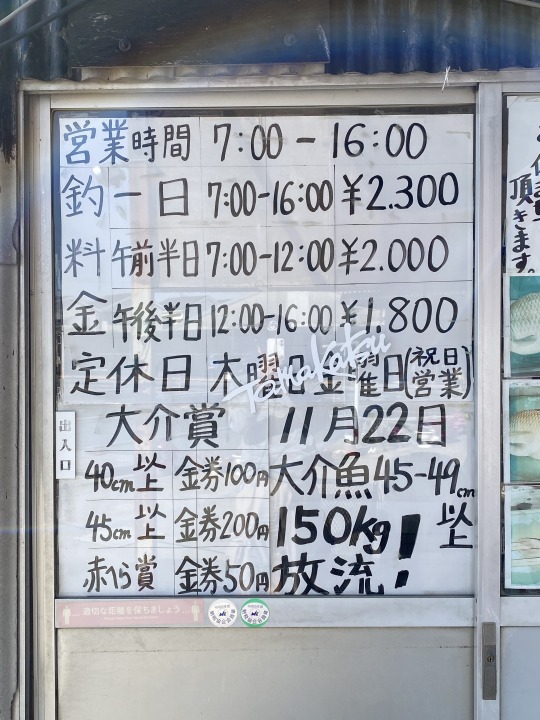 営業時間 7:00-16:00
釣一日 7:00-16:00 ¥2.300
料午前半日 7:00-12:00 ¥2.000
金午後半日 12:00-16:00 ¥1.800
定休日 木曜日金曜日(祝日営業)
Tomakatsu
大介賞 11月22日
出入口
40cm以上 金券100円 大介魚45-49cm
45cm以上 金券200円 150kg以上
赤へら賞 金券50円 放流!
適切な距離を保ちましょう...
頂きます。